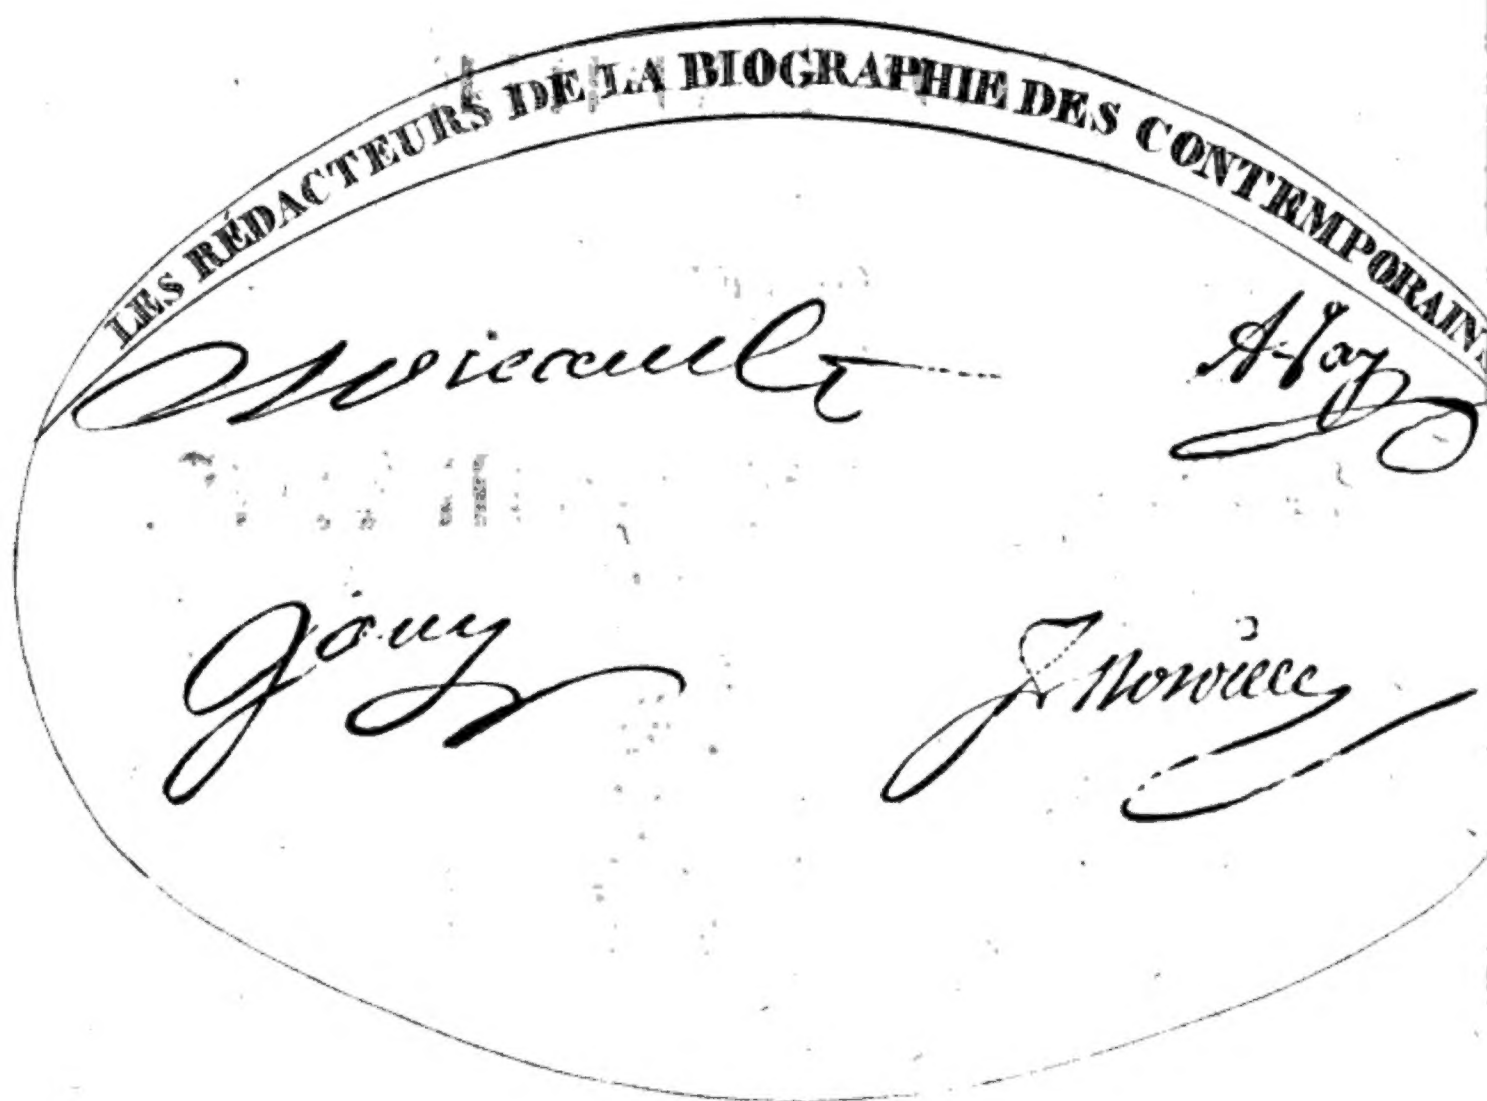 LES RÉDACTEURS DE LA BIOGRAPHIE DES CONTEMPORAINS
A. Jay
Jouy
J Norvins